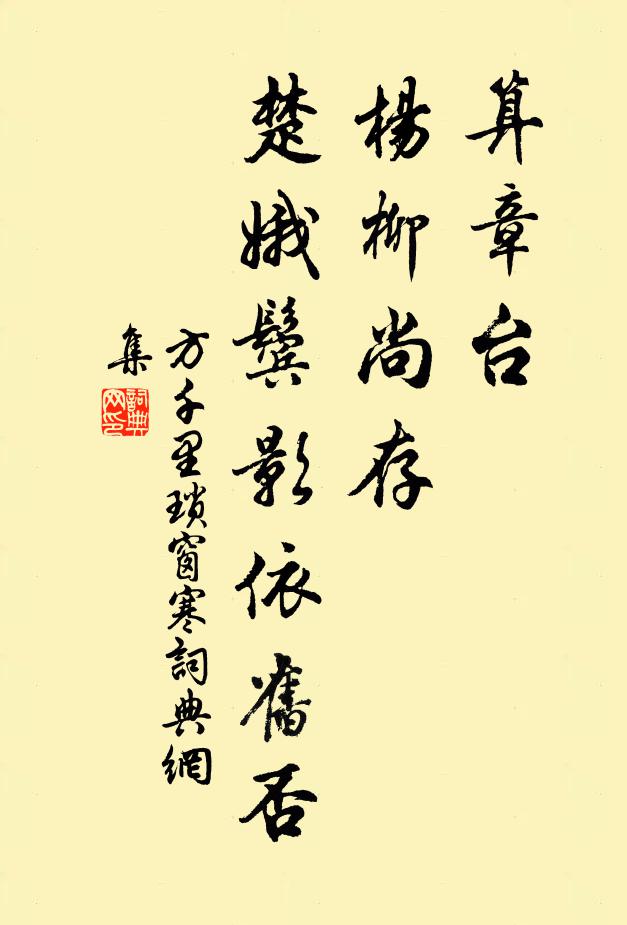 算章台
楊柳尚存
楚娥鬓影依舊否
方千里瑣窗寒詞典網
集
詞典
网印